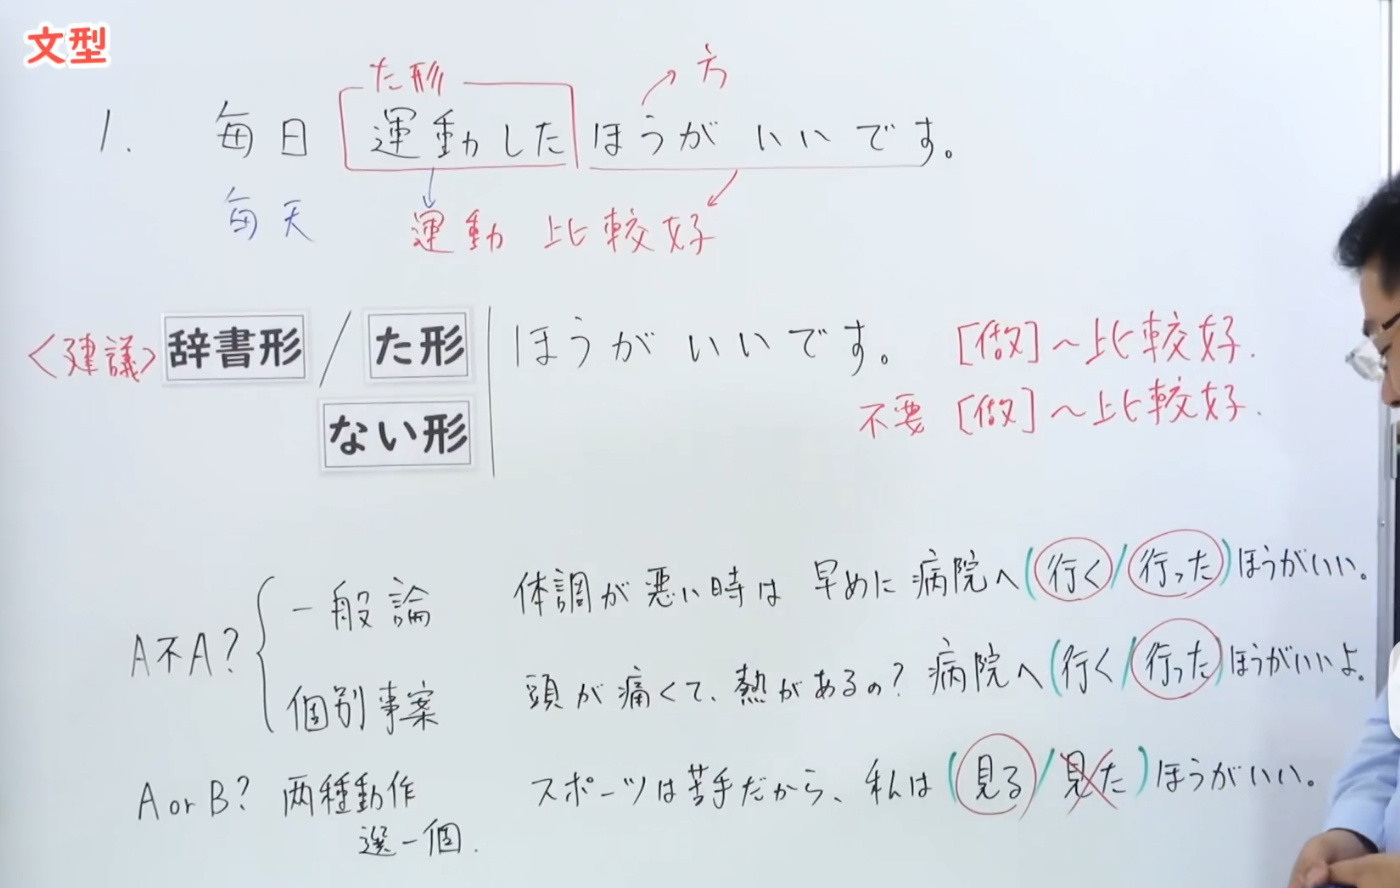 文型
た形 方
1. 毎日 運動した ほうが いいです。
每天 運動 比較好
<建議> 辞書形 / た形 ほうが いいです。 [做]～比較好.
ない形 不要 [做]～比較好.
A不A? 一般論 体調が悪い時は 早めに 病院へ(行く/行った)ほうがいい。
個別事案 頭が痛くて、熱があるの? 病院へ(行く/行った)ほうがいいよ。
A or B? 両種動作 スポーツは苦手だから、私は(見る/見た)ほうがいい。
選一個.